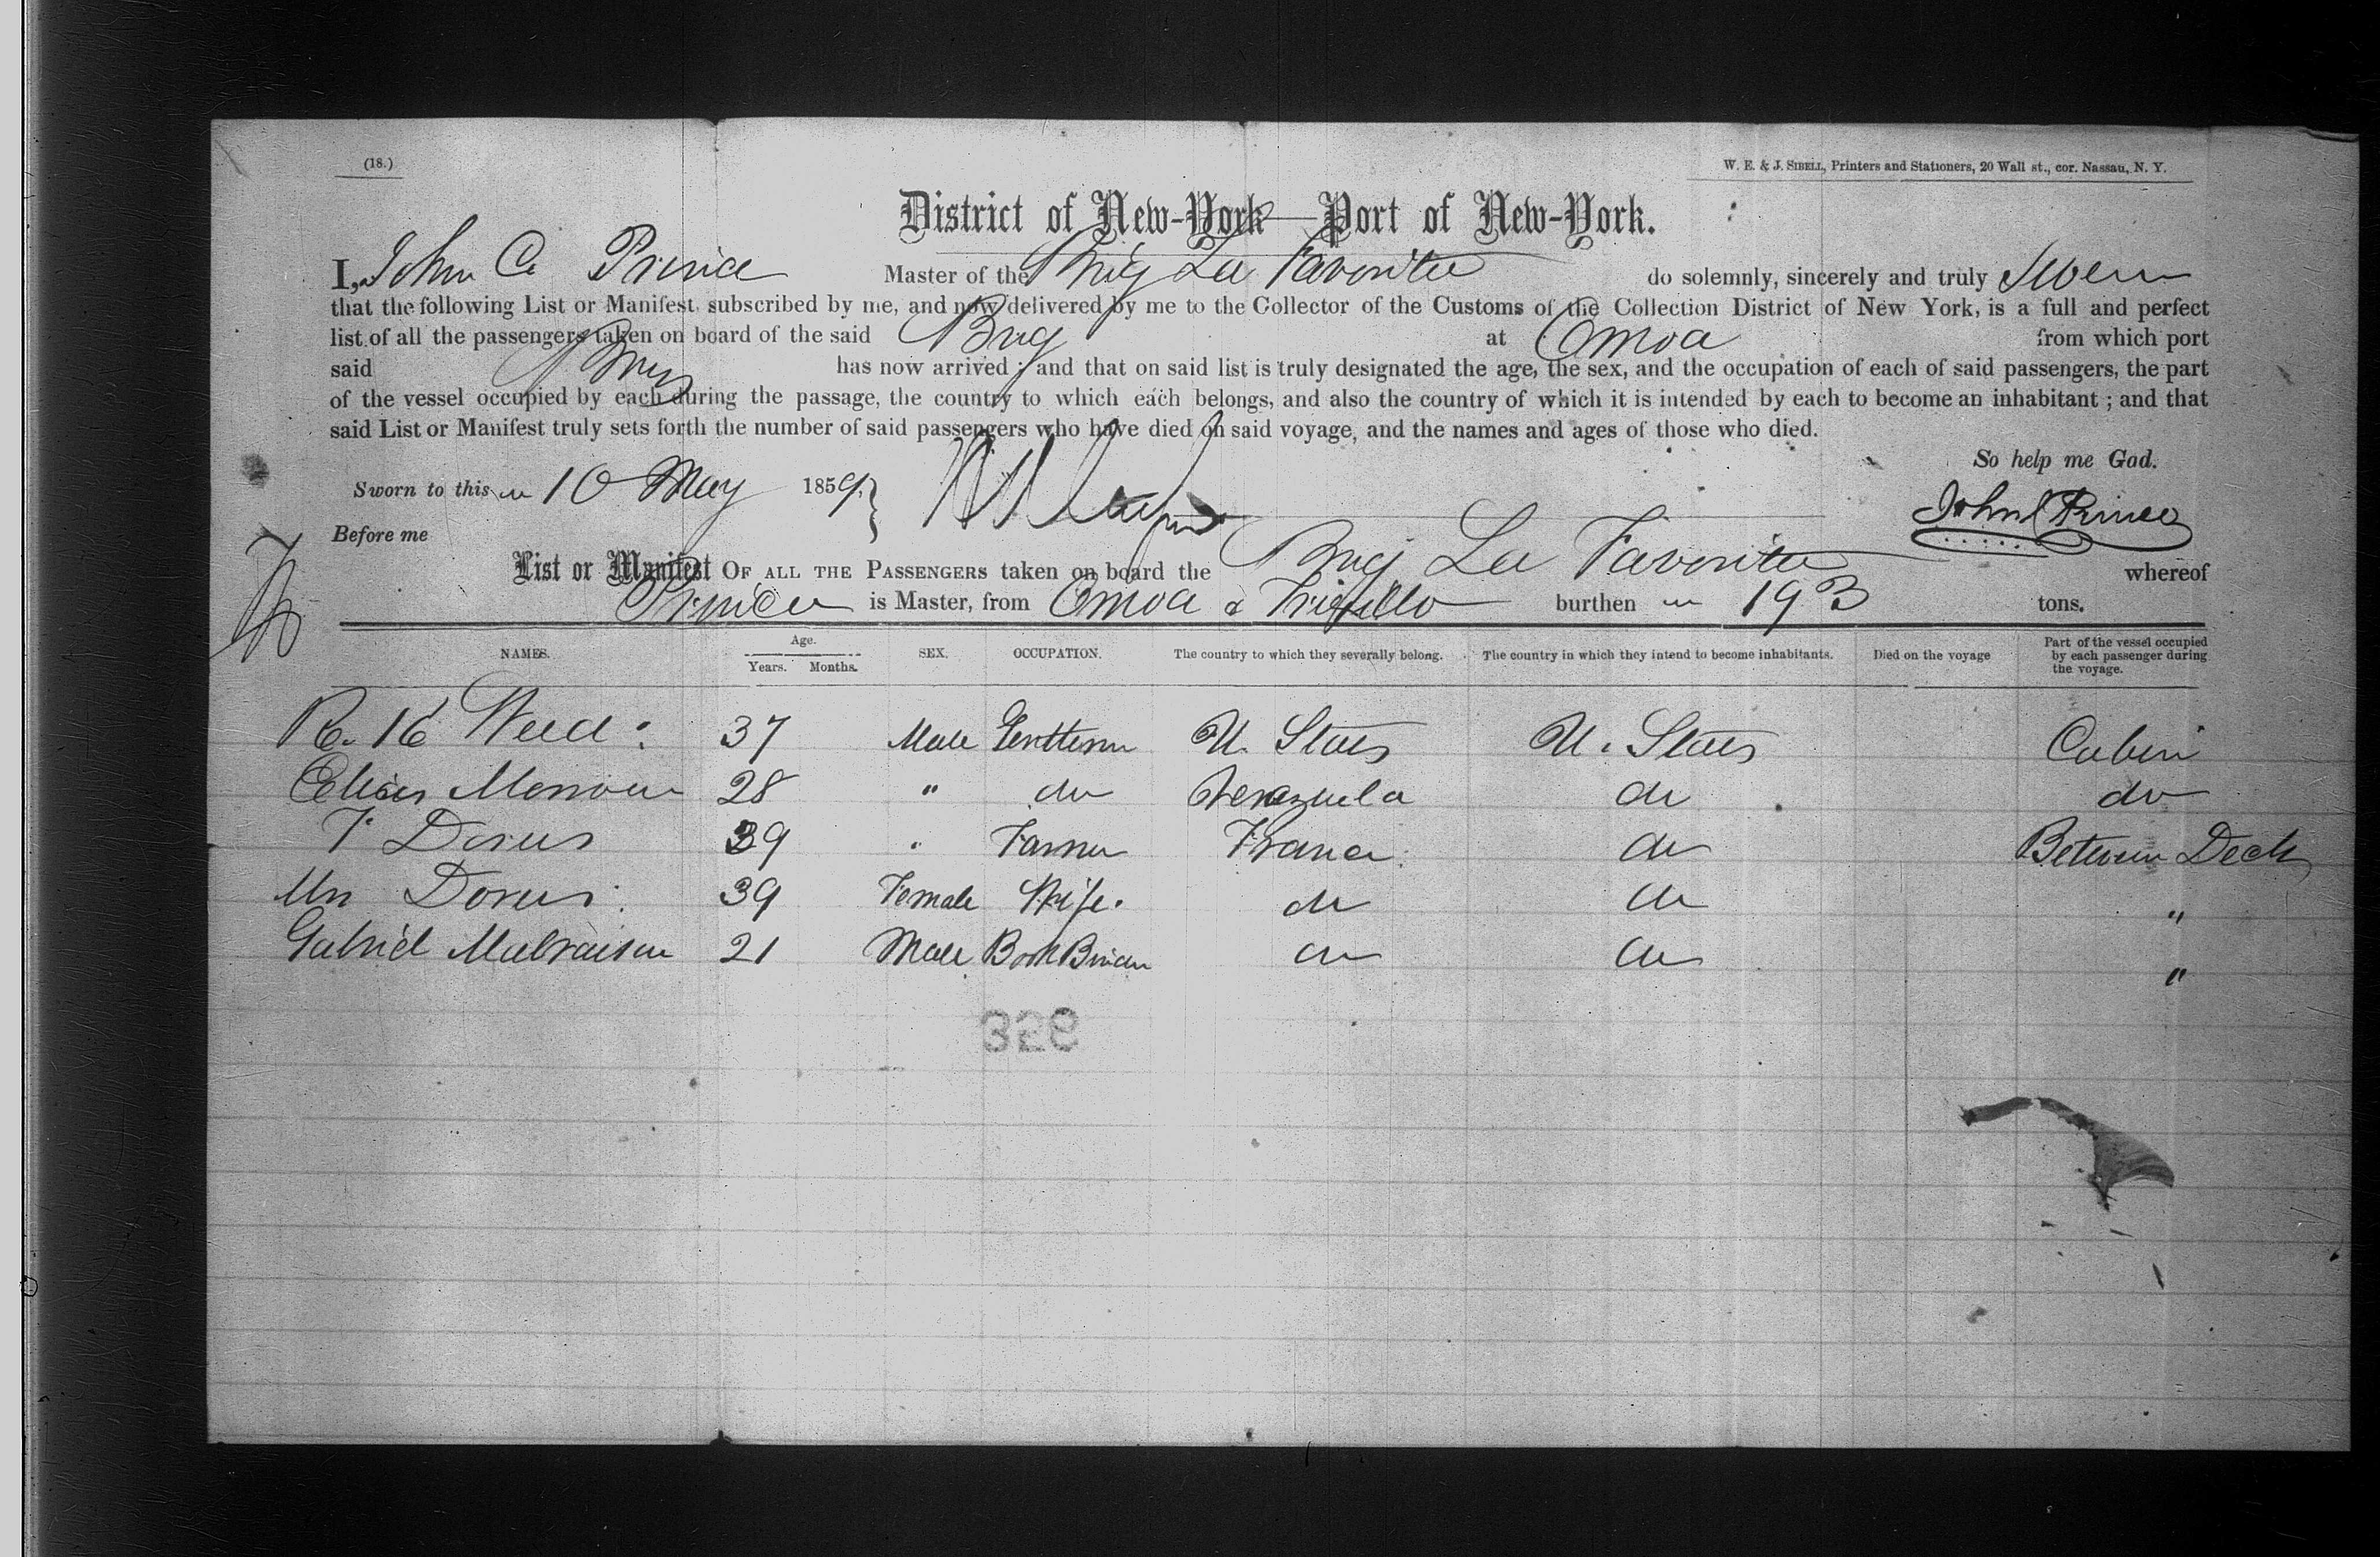 (18.)
W. E. & J. SIBELL, Printers and Stationers, 20 Wall st., cor. Nassau, N. Y.
District of New-York—Port of New-York.
I, John C Prince Master of the Brig La Favorite do solemnly, sincerely and truly Swear
that the following List or Manifest, subscribed by me, and now delivered by me to the Collector of the Customs of the Collection District of New York, is a full and perfect
list of all the passengers taken on board of the said Brig at Omoa from which port
said Brig has now arrived; and that on said list is truly designated the age, the sex, and the occupation of each of said passengers, the part
of the vessel occupied by each during the passage, the country to which each belongs, and also the country of which it is intended by each to become an inhabitant; and that
said List or Manifest truly sets forth the number of said passengers who have died on said voyage, and the names and ages of those who died.
So help me God.
Sworn to this 10 May 1859,
John C Prince
Before me
List or Manifest OF ALL THE PASSENGERS taken on board the Brig La Favorite whereof
Prince is Master, from Omoa & Trujillo burthen 193 tons.
NAMES. Age. Years. Months. SEX. OCCUPATION. The country to which they severally belong. The country in which they intend to become inhabitants. Died on the voyage Part of the vessel occupied by each passenger during the voyage.
37 Male U. States U. States Cabin
28 " do Venezuela do do
39 " Farmer France do Between Deck
39 Female Wife. do do "
Gabriel 21 Male do do "
329